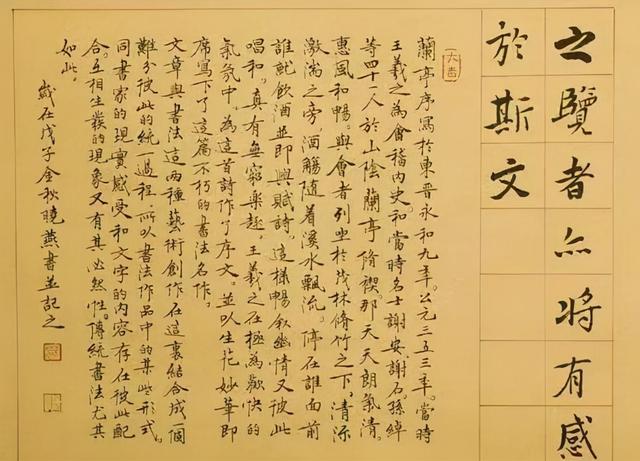 之覽者亦將有感
於斯文
大吉
蘭亭序寫於東晉永和九年。公元三五三年。當時
王羲之為會稽內史。和當時名士謝安、謝石、孫綽
等四十一人於山陰蘭亭脩禊。那天天朗氣清。
惠風和暢。與會者列坐於茂林脩竹之下，清流
激湍之旁，酒觴隨着溪水飄流。停在誰面前
誰就飲酒並即興賦詩。這樣暢敘幽情又彼此
唱和，真有無窮樂趣。王羲之在極為歡快的
氣氛中，為這首詩作了序文。並以生花妙筆即
席寫下了這篇不朽的書法名作。
文章與書法這兩種藝術創作在這裏結合成一個
難分彼此的統一過程。所以書法作品中的某些形式。
同書家的現實感受和文字的內容存在彼此配
合。互相生發的現象又有其必然性。傳統書法尤其
如此。
歲在戊子金秋曉燕書並記之